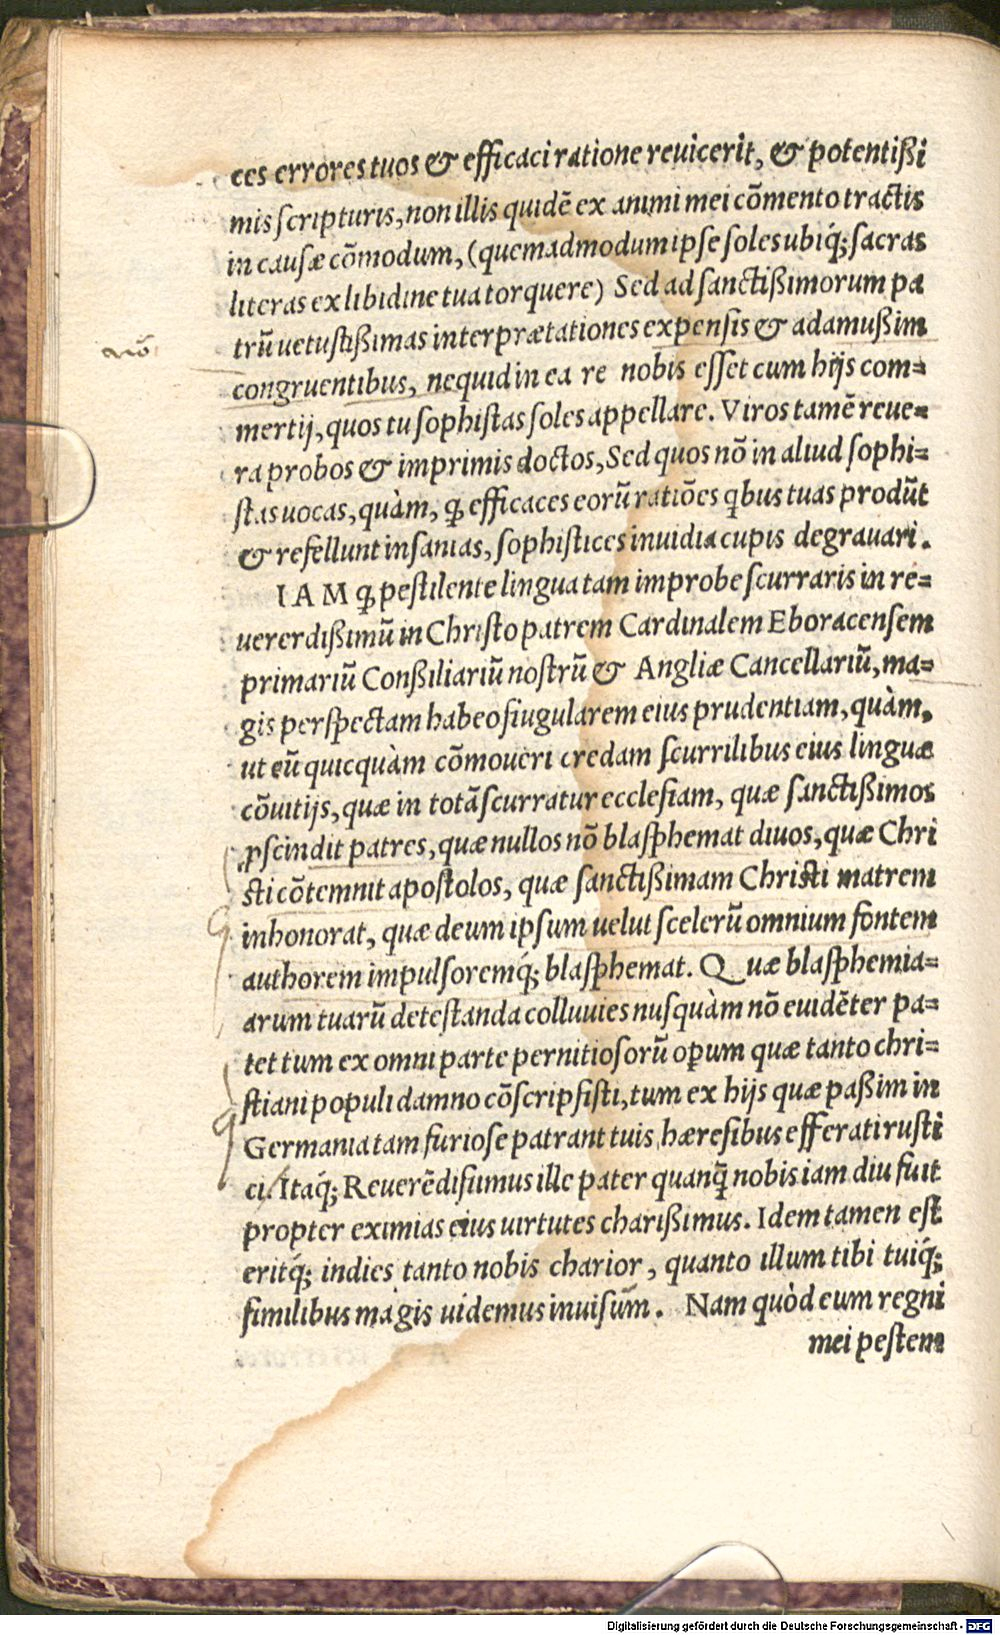 ces errores tuos & efficaci ratione reuicerit, & potentißi
mis scripturis, non illis quidē ex animi mei cōmento tractis
in causæ cōmodum, (quemadmodum ipse soles ubiq́; sacras
literas ex libidine tua torquere) Sed ad sanctißimorum pa
trū uetustißimas interprætationes expensis & adamußim
congruentibus, nequid in ea re nobis esset cum hijs com=
mertij, quos tu sophistas soles appellare. Viros tamē reue=
ra probos & imprimis doctos, Sed quos nō in aliud sophi=
stas uocas, quàm, ꝙ efficaces eorū ratiōes qbus tuas produ̅t
& refellunt insanias, sophistices inuidia cupis degrauari.
IAM ꝙ pestilente lingua tam improbe scurraris in re=
uererdißimū in Christo patrem Cardinalem Eboracensem
primariū Conßiliariū nostrū & Angliæ Cancellariū, ma=
gis perspectam habeo siugularem eius prudentiam, quàm,
ut eū quicquàm cōmoueri credam scurrilibus eius linguæ
cōuitijs, quæ in totā scurratur ecclesiam, quæ sanctißimos
ꝓscindit patres, quæ nullos nō blasphemat diuos, quæ Chri
sti cōtemnit apostolos, quæ sanctißimam Christi matrem
inhonorat, quæ deum ipsum uelut scelerū omnium fontem
authorem impulsoremq́; blasphemat. Quæ blasphemia=
arum tuarū detestanda colluuies nusquàm nō euidēter pa=
tet tum ex omni parte pernitiosorū opum quæ tanto chri=
stiani populi damno cōscripsisti, tum ex hijs quæ paßim in
Germania tam furiose patrant tuis hæresibus efferati rusti
ci. Itaq́; Reuerēdisumus ille pater quanq̄ nobis iam diu fuit
propter eximias eius uirtutes charißimus. Idem tamen est
eritq́; indies tanto nobis charior, quanto illum tibi tuiq́;
similibus magis uidemus inuisum. Nam quòd eum regni
mei pestem
Digitalisierung gefördert durch die Deutsche Forschungsgemeinschaft - DFG